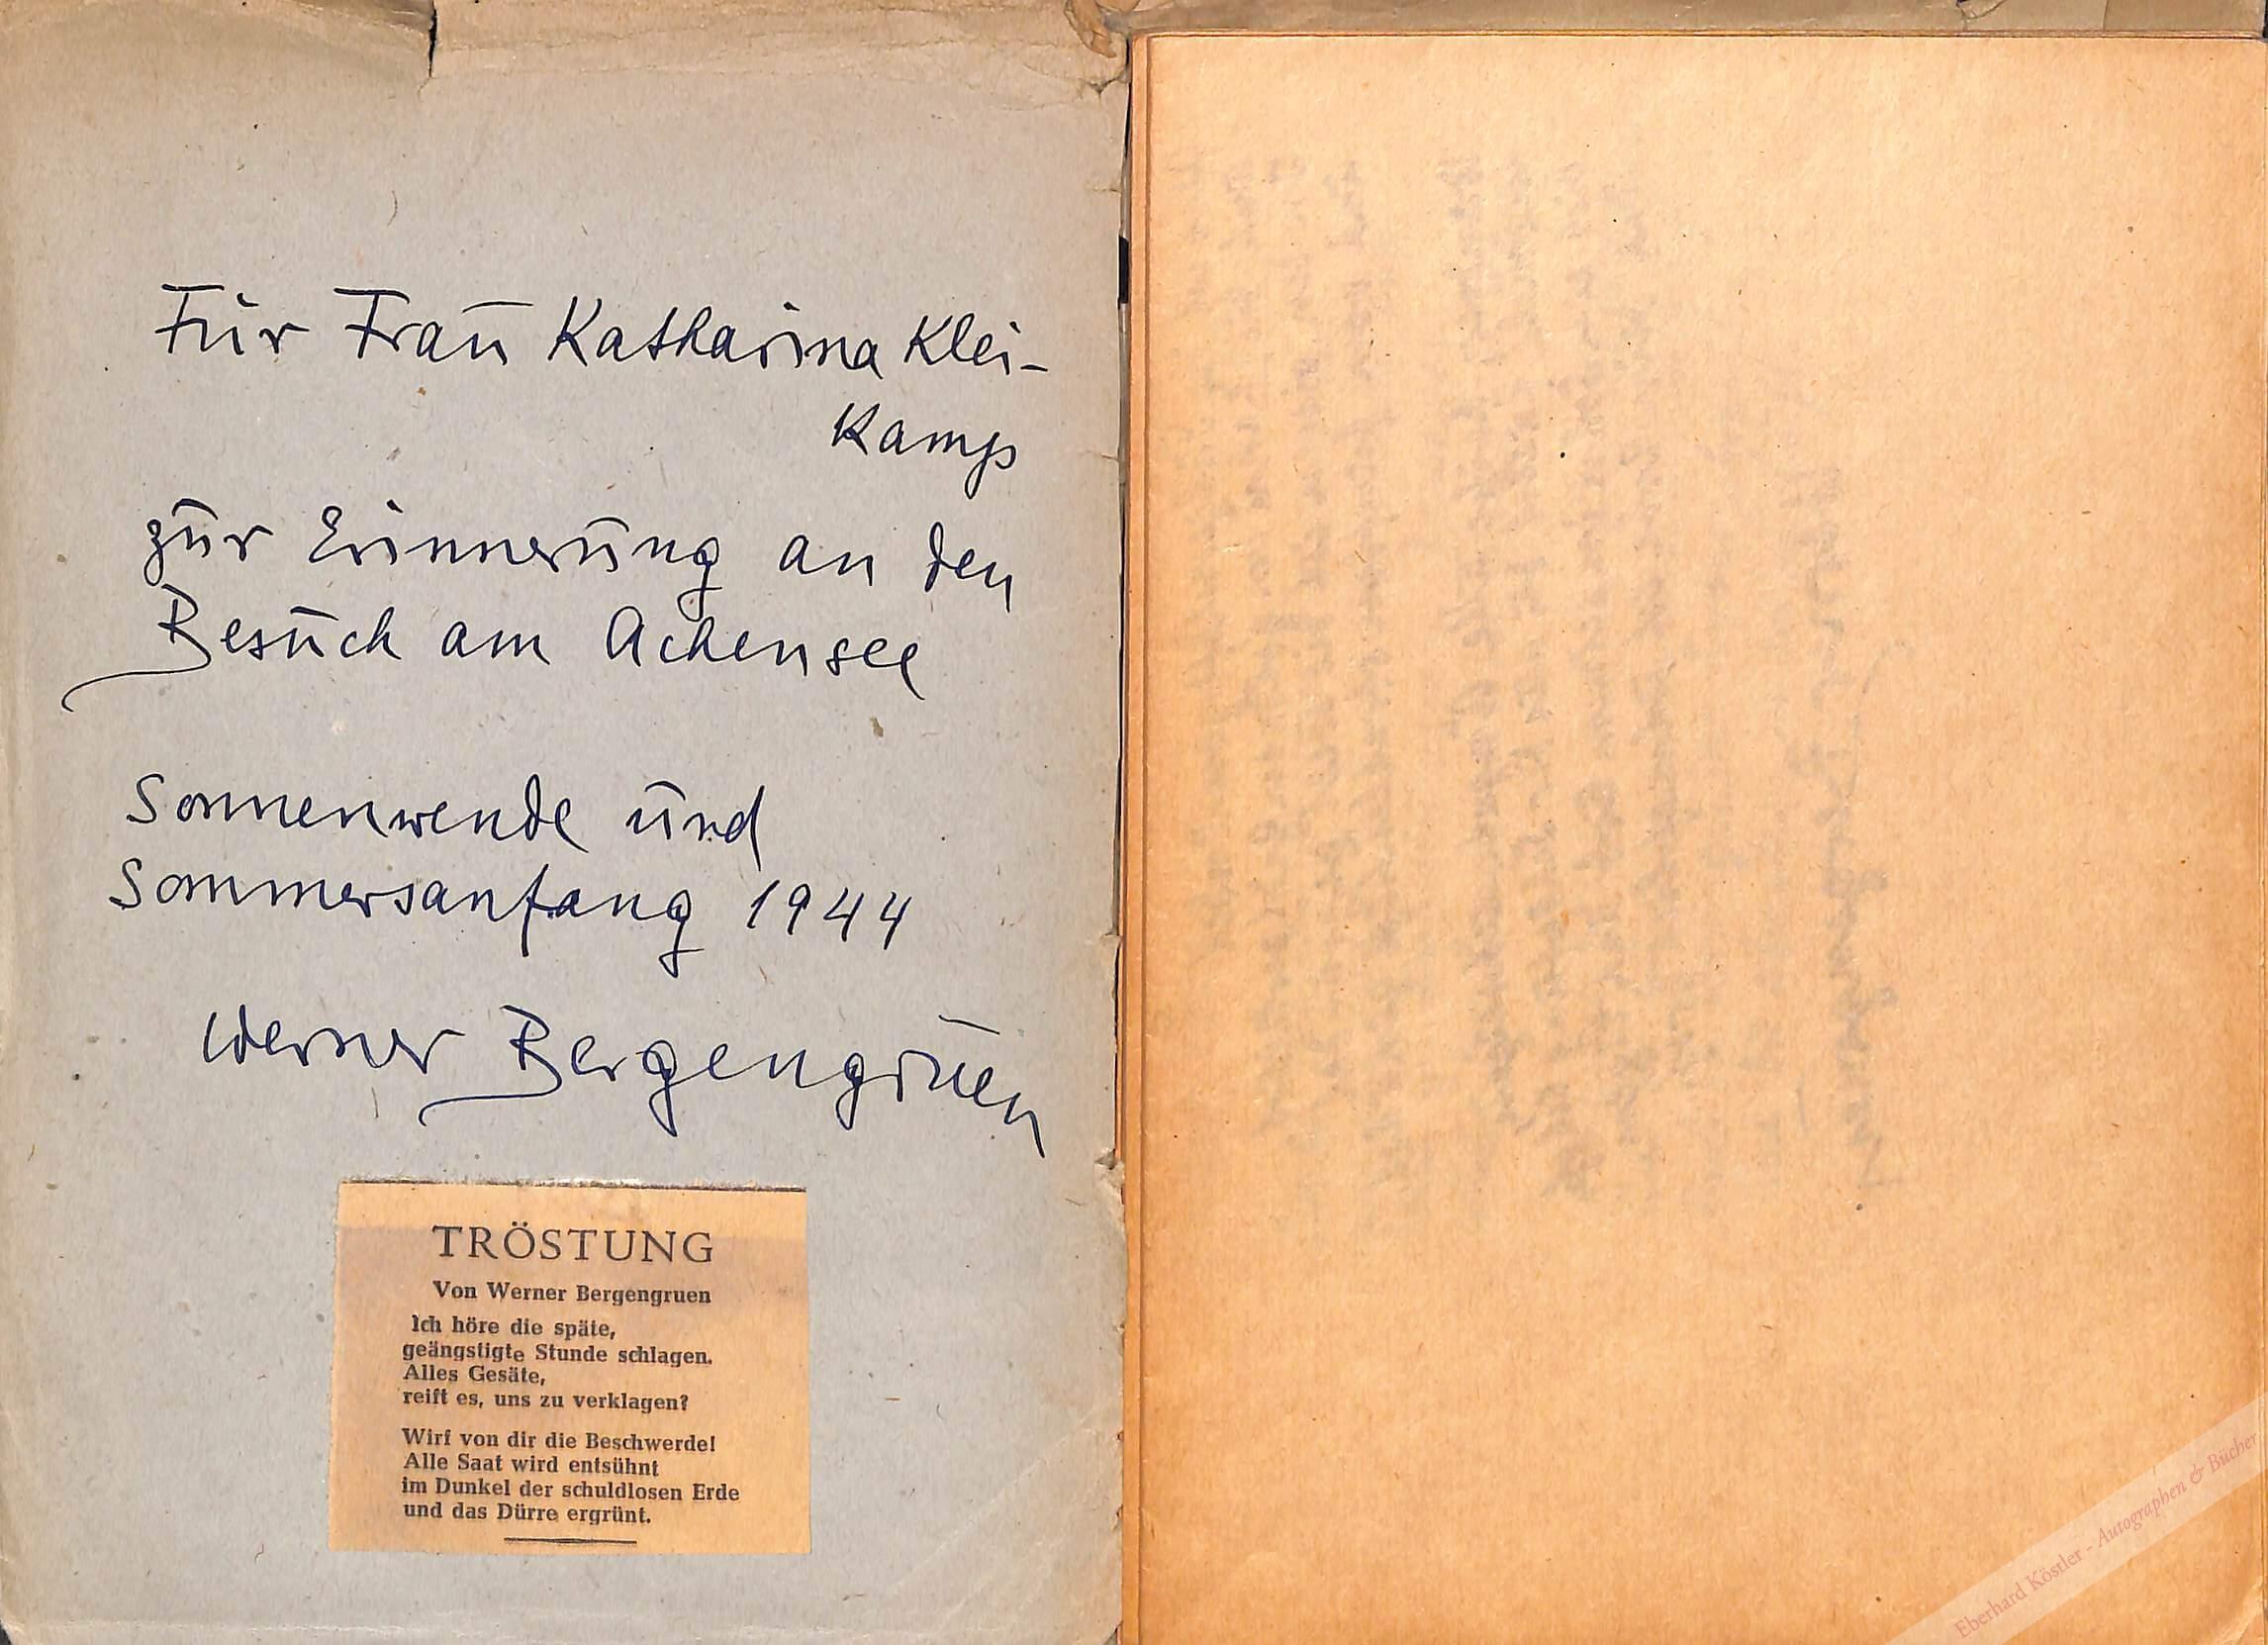 Für Frau Katharina Klei-
kamp
zur Erinnerung an den
Besuch am Achensee
Sonnenwende und
Sommersanfang 1944
Werner Bergengruen
TRÖSTUNG
Von Werner Bergengruen
Ich höre die späte,
geängstigte Stunde schlagen.
Alles Gesäte,
reift es, uns zu verklagen?
Wirf von dir die Beschwerde!
Alle Saat wird entsühnt
im Dunkel der schuldlosen Erde
und das Dürre ergrünt.
Eberhard Köstler - Autographen & Bücher